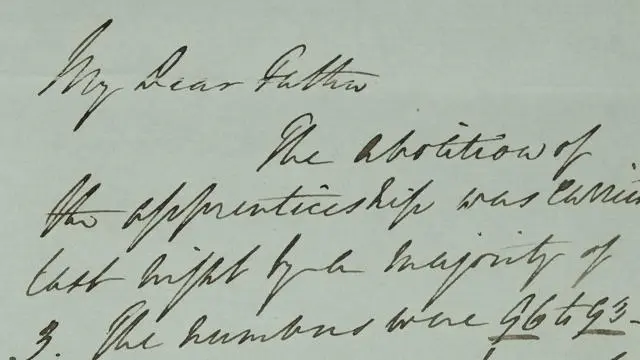 My Dear Father
The abolition of
the apprenticeship was carrie
last night by a majority of
3. The numbers were 96 to 93-